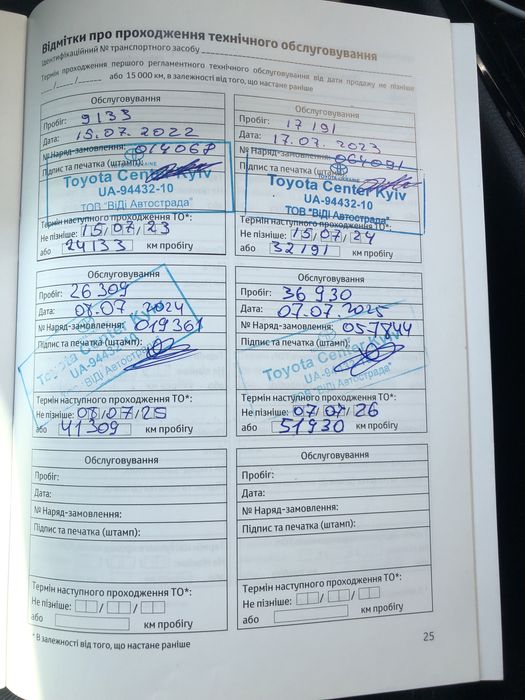 Відмітки про проходження технічного обслуговування
Ідентифікаційний № транспортного засобу
Термін проходження першого регламентного технічного обслуговування від дати продажу не пізніше
__/__/__ або 15 000 км, в залежності від того, що настане раніше
Обслуговування
Пробіг: 9133
Дата: 15.07.2022
№ Наряд-замовлення: 014068
Підпис та печатка (штамп):
TOYOTA UKRAINE
Toyota Center Kyiv
UA-94432-10
ТОВ "ВіДі Автострада"
Термін наступного проходження ТО*:
Не пізніше: 15/07/23
або 24133 км пробігу
Обслуговування
Пробіг: 17191
Дата: 17.07.2023
№ Наряд-замовлення: 064091
Підпис та печатка (штамп):
Toyota Center Kyiv
UA-94432-10
ТОВ "ВіДі Автострада"
Термін наступного проходження ТО*:
Не пізніше: 15/07/24
або 32191 км пробігу
Обслуговування
Пробіг: 26309
Дата: 08.07.2024
№ Наряд-замовлення: 019361
Підпис та печатка (штамп):
Toyota Center Kyiv
UA-94432-10
"ВіДі Автострада"
Термін наступного проходження ТО*:
Не пізніше: 08/07/25
або 41309 км пробігу
Обслуговування
Пробіг: 36930
Дата: 07.07.2025
№ Наряд-замовлення: 057844
Підпис та печатка (штамп):
Toyota Center Kyiv
"ВіДі Автострада"
Термін наступного проходження ТО*:
Не пізніше: 07/07/26
або 51930 км пробігу
Обслуговування
Пробіг:
Дата:
№ Наряд-замовлення:
Підпис та печатка (штамп):
Термін наступного проходження ТО*:
Не пізніше: / /
або км пробігу
Обслуговування
Пробіг:
Дата:
№ Наряд-замовлення:
Підпис та печатка (штамп):
Термін наступного проходження ТО*:
Не пізніше: / /
або км пробігу
* В залежності від того, що настане раніше
25